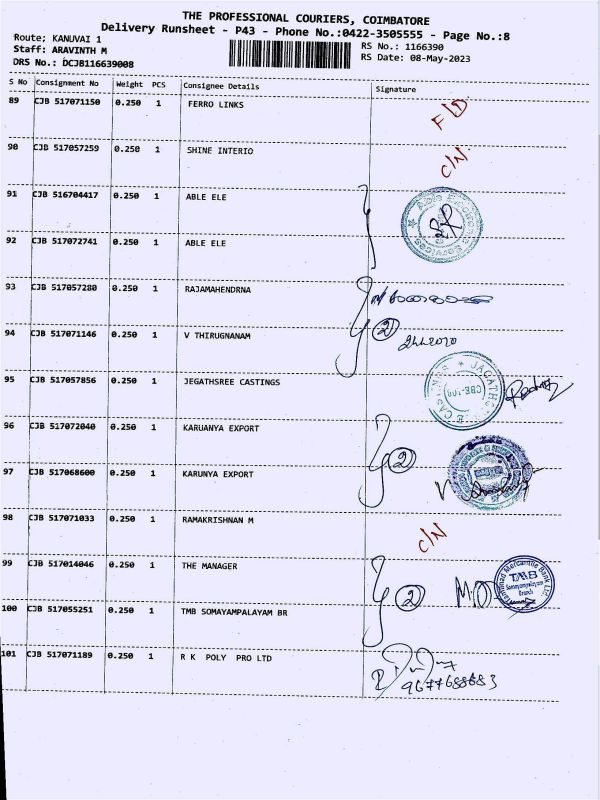 THE PROFESSIONAL COURIERS, COIMBATORE
Delivery Runsheet - P43 - Phone No.:0422-3505555 - Page No.:8
Route; KANUVAI 1
Staff: ARAVINTH M
DRS No.: DCJB116639008
RS No.: 1166390
RS Date: 08-May-2023
S No Consignment No Weight PCS Consignee Details Signature
89 CJB 517071150 0.250 1 FERRO LINKS F/D
90 CJB 517057259 0.250 1 SHINE INTERIO C/N
91 CJB 516704417 0.250 1 ABLE ELE
92 CJB 517072741 0.250 1 ABLE ELE
93 CJB 517057280 0.250 1 RAJAMAHENDRNA
94 CJB 517071146 0.250 1 V THIRUGNANAM 2
95 CJB 517057856 0.250 1 JEGATHSREE CASTINGS
96 CJB 517072040 0.250 1 KARUANYA EXPORT
97 CJB 517068600 0.250 1 KARUNYA EXPORT 2
98 CJB 517071033 0.250 1 RAMAKRISHNAN M C/N
99 CJB 517014046 0.250 1 THE MANAGER 2
Tamilnad Mercantile Bank Ltd.
TMB
Somayampalayam
Branch
100 CJB 517055251 0.250 1 TMB SOMAYAMPALAYAM BR
101 CJB 517071189 0.250 1 R K POLY PRO LTD
9677688683